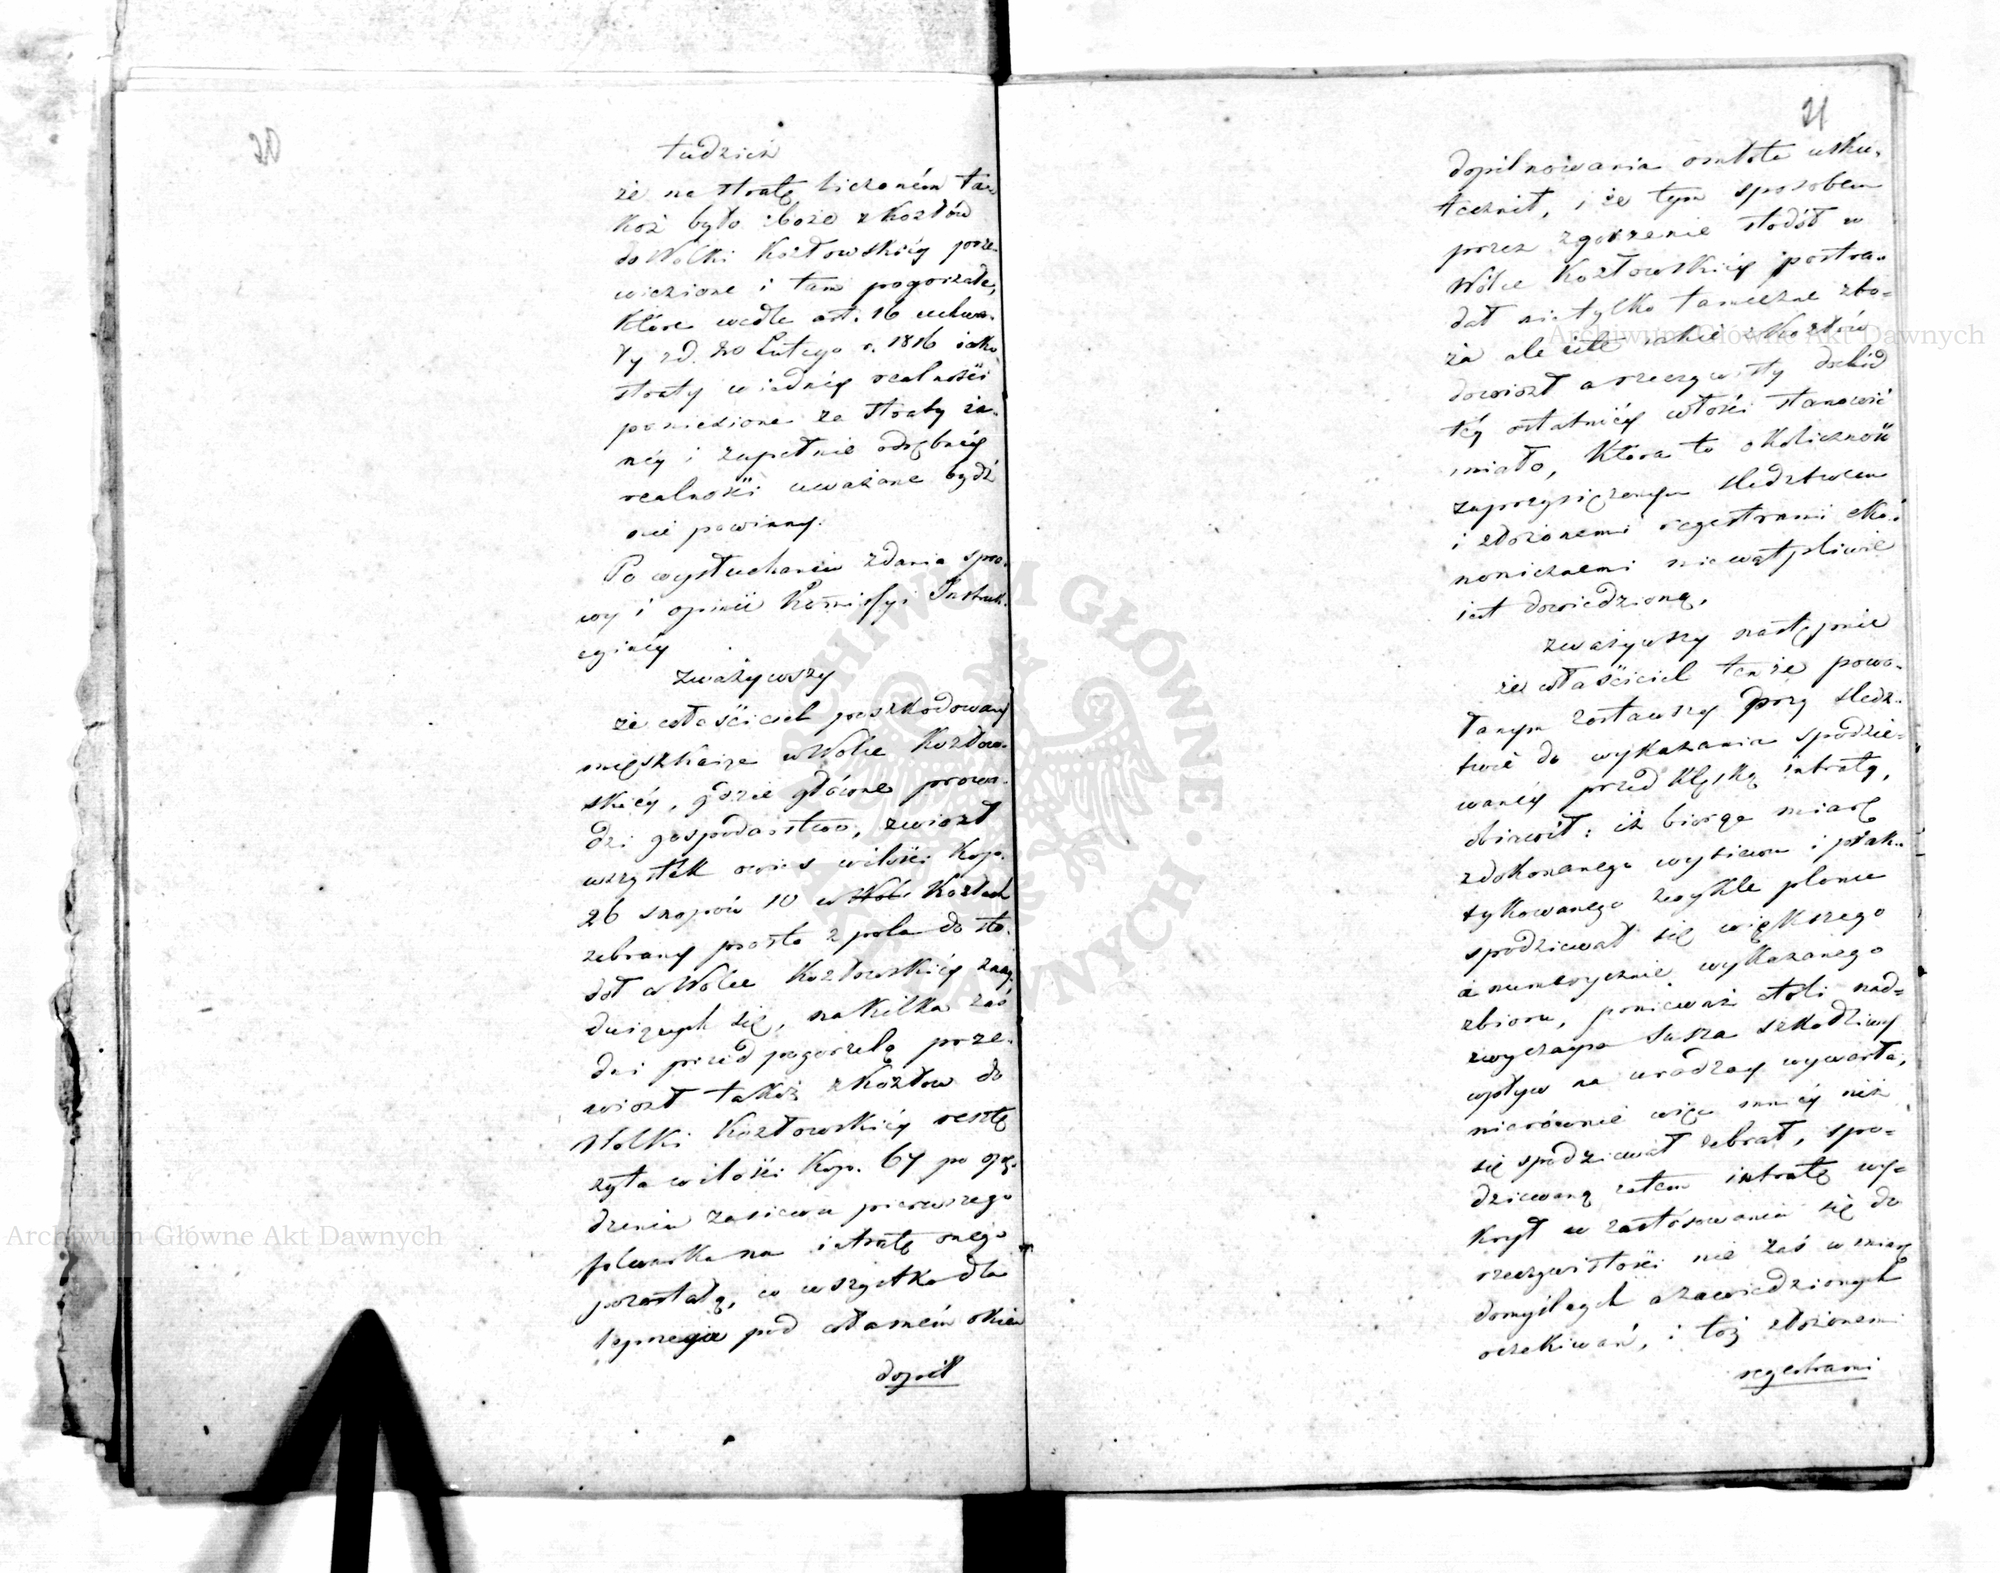 20
tudzież
że na stratę liczoném tak
koż było zboże z Kozłów
do Wolki Kozłowskiéy prze-
wiezione i tam pogorzałe,
które wedle art. 16 uchwa-
ły z d. 20 Lutego r. 1816 iako
straty w iednéy realności
poniesione za straty in-
néy i zupełnie odrębnéy
realności uważane bydź
nie powinny.
Po wysłuchaniu zdania spra-
wy i opinii Kommissyi Instruk-
cyinéy
zważywszy
że właściciel poszkodowany
mięszkaiąc w Wolce Kozłow-
skiéy, gdzie główne prowa-
dzi gospodarstwo, zwiozł
wszystek owies w ilości Kop.
26 snopów 10 w Kozłach
zebrany prosto z pola do sto-
dół w Wolce Kozłowskiéy znay-
duiących się, na kilka zaś
dni przed pogorzelą prze-
wiozł także z Kozłów do
Wolki Kozłowskiéy resztę
żyta w ilości Kop. 67 po
dzeniu zasiewu pierwszego
folwarku na intratę onego
pozostałą, co wszystko dla
lepszego pod własném okiem
dopil
21
dopilnowania omłotu usku-
tecznił, i że tym sposobem
przez zgorzenie stodół w
Wolce Kozłowskiéy postra-
dał nietylko tameczne zbo-
ża ale i te iakie z Kozłów
dowiozł a rzeczywisty dochód
téy ostatniéy włości stanowić
miało, która to okoliczność
zaprzysiężonym śledztwem
i złożonemi regestrami eko-
nomicznemi niewątpliwie
iest dowiedzioną,
zważywszy następnie
że właściciel tenże powo-
łanym zostawszy przy śledz-
twie do wykazania spodzie-
wanéy przed klęską intraty,
obiawił: iż biorąc miarę
z dokonanego wysiewu i prak-
tykowanego zwykle plonu
spodziewał się większego
a numerycznie wykazanego
zbioru, ponieważ atoli nad-
zwyczayna susza szkodliwy
wpływ na urodzay wywarła,
nierównie więc mniéy niż
się spodziewał zebrał, spo-
dziewaną zatem intratę wy-
krył w zastósowaniu się do
rzeczywistości nie zaś w miarę
domyślnych a zawiedzionych
oczekiwań, i toż złożonemi
regestrami
Archiwum Główne Akt Dawnych
Archiwum Główne Akt Dawnych
ARCHIWUM GŁÓWNE AKT DAWNYCH